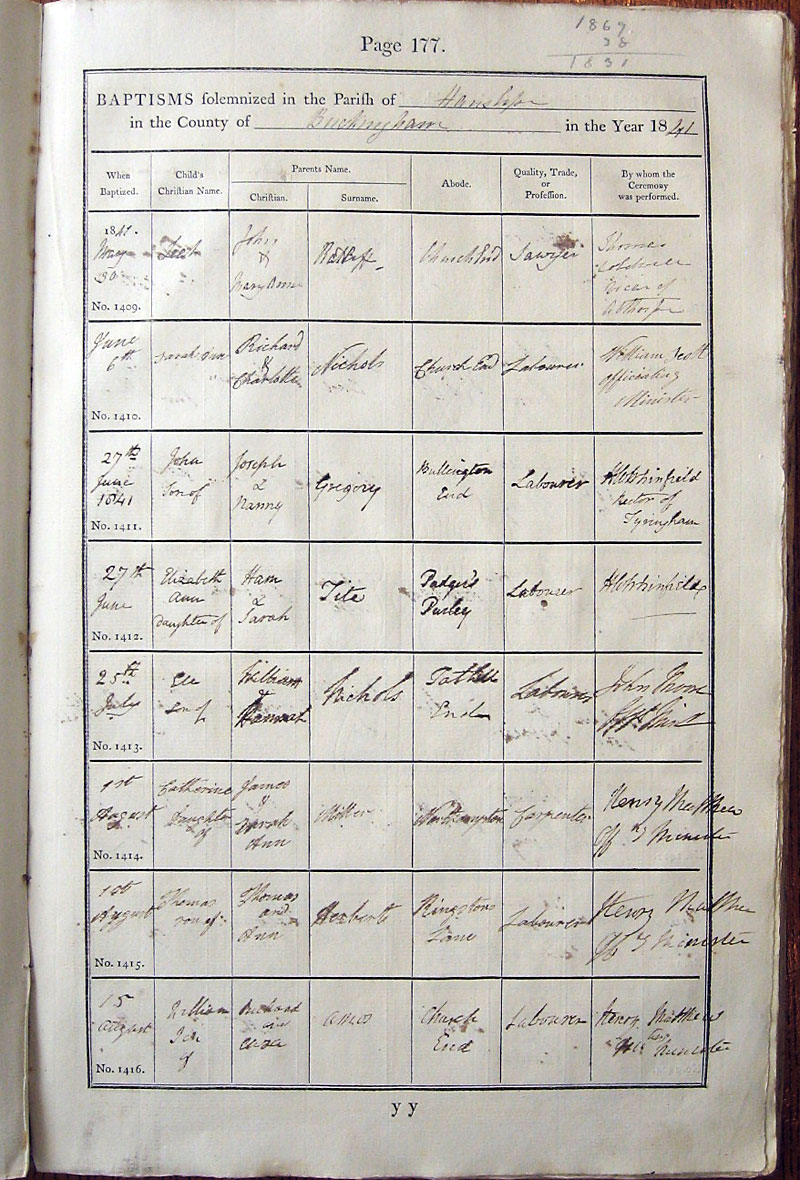 1867
38
1831
Page 177.
BAPTISMS solemnized in the Parish of Hanslope
in the County of Buckingham in the Year 1841
When Baptized.
Child's Christian Name.
Parents Name.
Christian.
Surname.
Abode.
Quality, Trade, or Profession.
By whom the Ceremony was performed.
1841.
May
30
No. 1409.
John
&
Mary Anne
Ratcliff
Church End
Sawyer
Thomas
Vicar of
Abthorpe
June
6th
No. 1410.
Sarah Ann
Richard
&
Charlotte
Nichols
Church End
Labourer
William Scott
officiating
Minister
27th
June
1841
No. 1411.
John
Son of
Joseph
&
Nanny
Gregory
Bullington
End
Labourer
Rector of
Tyringham
27th
June
No. 1412.
Elizabeth
Ann
Daughter of
Ham
&
Sarah
Tite
Padger's
Purley
Labourer
25th
July
No. 1413.
Son of
William
&
Hannah
Nichols
Tathall
End
Labourer
John
1st
August
No. 1414.
Catherine
Daughter
of
James
&
Sarah
Ann
Miller
Northampton
Carpenter
Henry Matthew
Off g Minister
1st
August
No. 1415.
Thomas
son of
Thomas
and
Ann
Herbert
Kingstons
Lane
Labourer
Henry Matthew
Off g Minister
15
August
No. 1416.
William
Son
of
Richard
and
Amos
Church
End
Labourer
Henry Matthew
Minister
y y